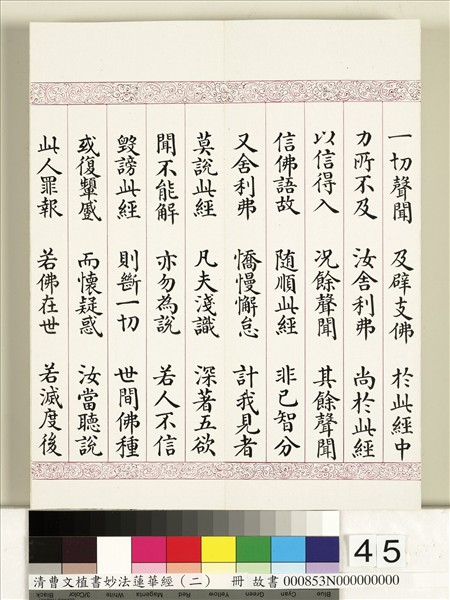 一切聲聞 及辟支佛 於此經中
力所不及 汝舍利弗 尚於此經
以信得入 況餘聲聞 其餘聲聞
信佛語故 隨順此經 非已智分
又舍利弗 憍慢懈怠 計我見者
莫說此經 凡夫淺識 深著五欲
聞不能解 亦勿為說 若人不信
毀謗此經 則斷一切 世間佛種
或復顰蹙 而懷疑惑 汝當聽說
此人罪報 若佛在世 若滅度後
45
清曹文植書妙法蓮華經(二) 冊 故書 000853N000000000
Blue Cyan Green Yellow Red Magenta White 3/Color Black